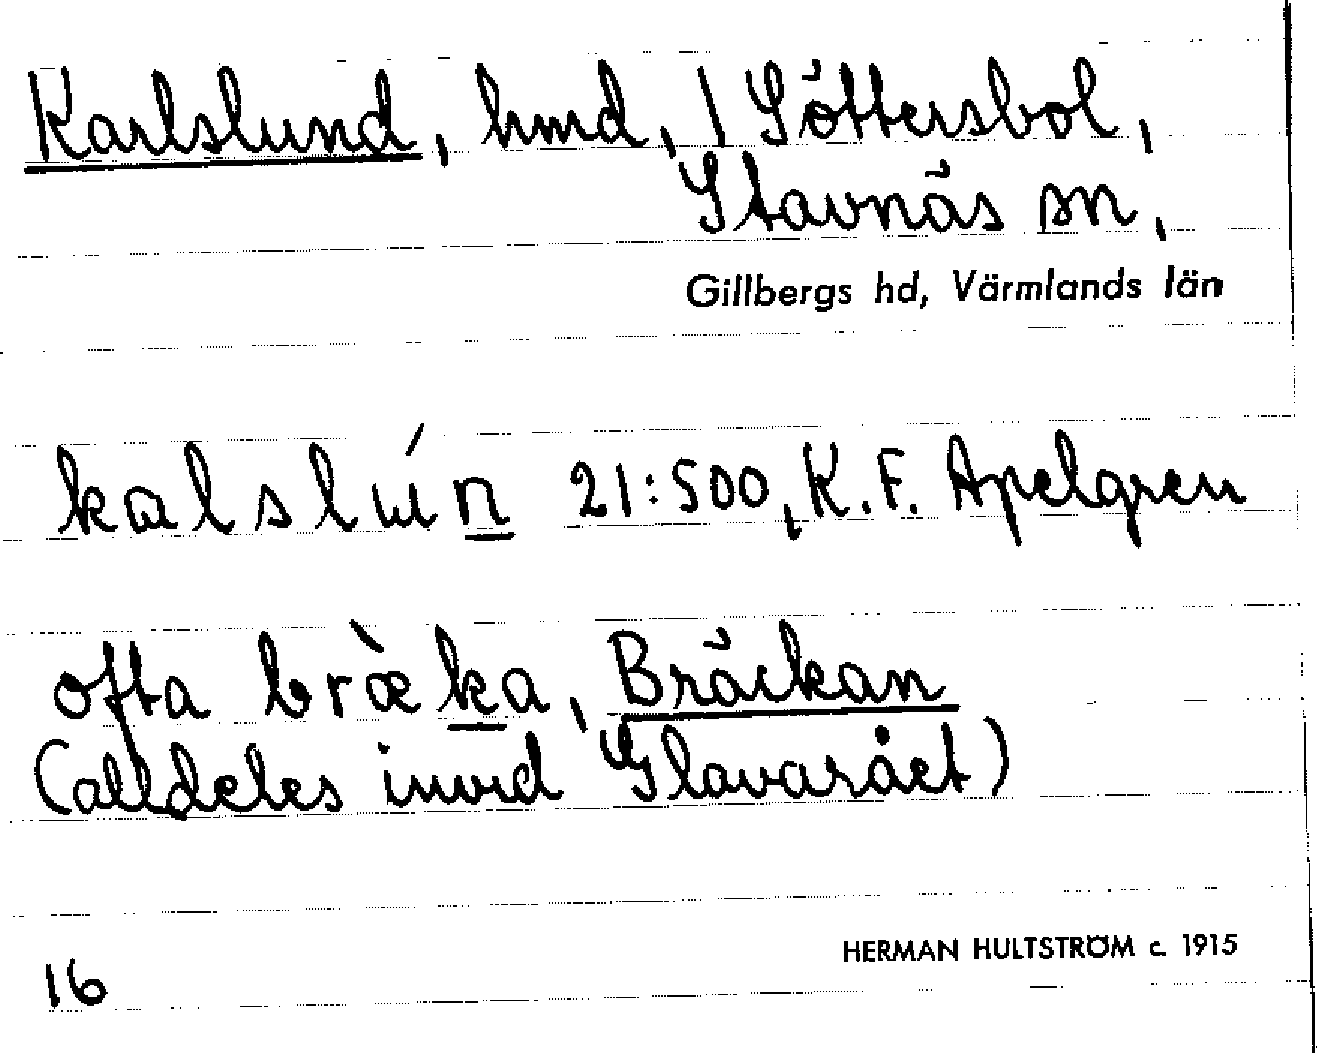 Karlslund, hmd, 1 Göttersbol,
Stavnäs sn,
Gillbergs hd, Värmlands län
kalslún 21:500, K. F. Apelgren
ofta bræ̀ka, Bräckan
(alldeles invid Glavarået)
16
HERMAN HULTSTRÖM c. 1915